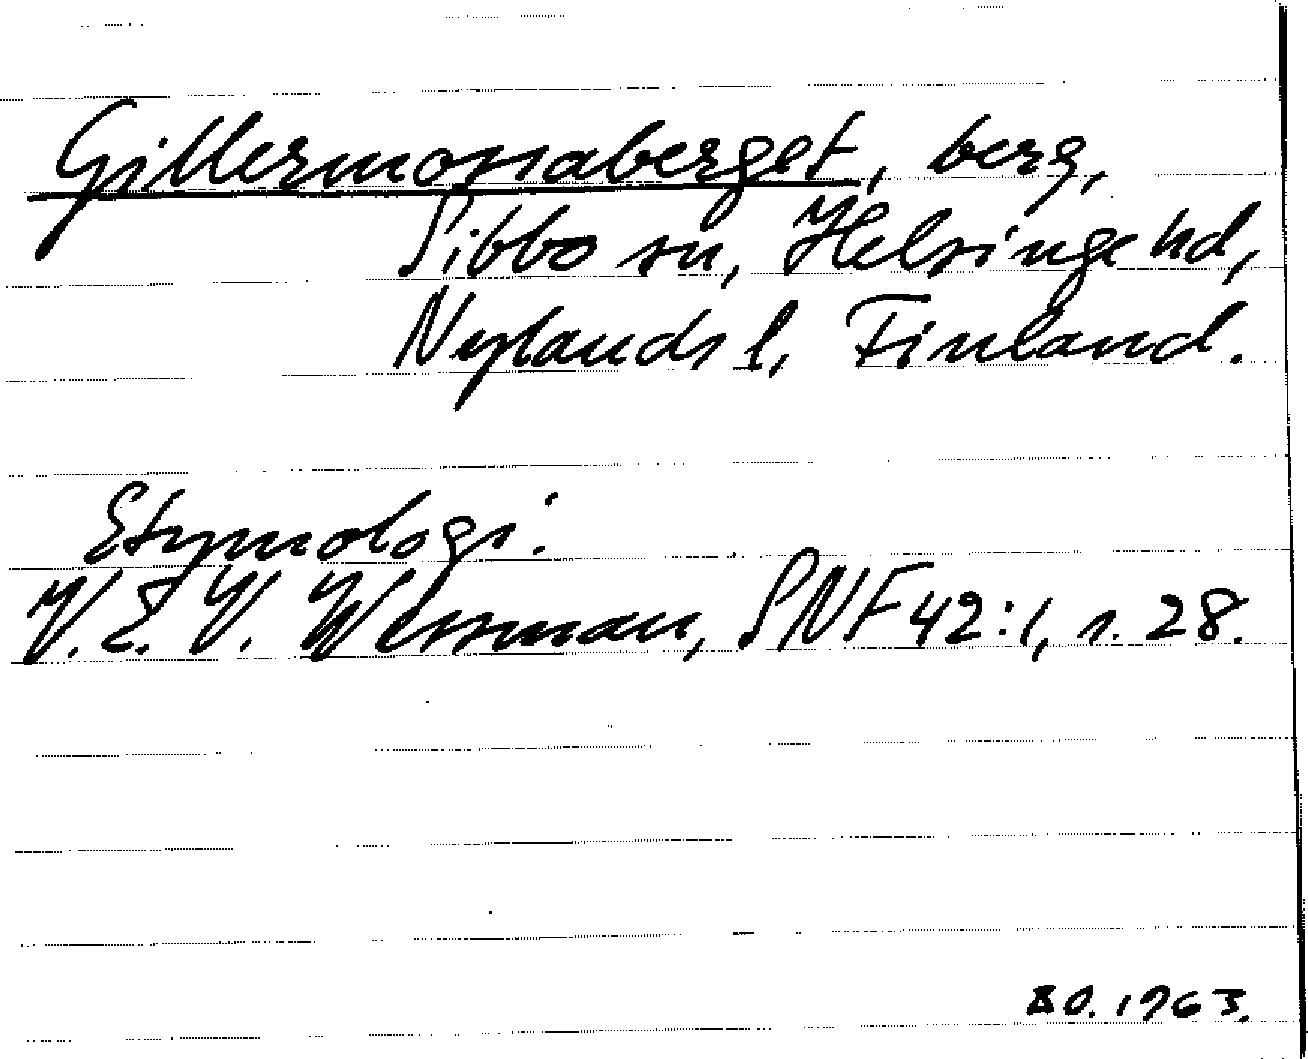 Gillermossaberget, berg,
Sibbo sn, Helsinge hd,
Nylands l, Finland.
Etymologi:
V. E. V. Wessman, SNF 42:1, s. 28.
1963.